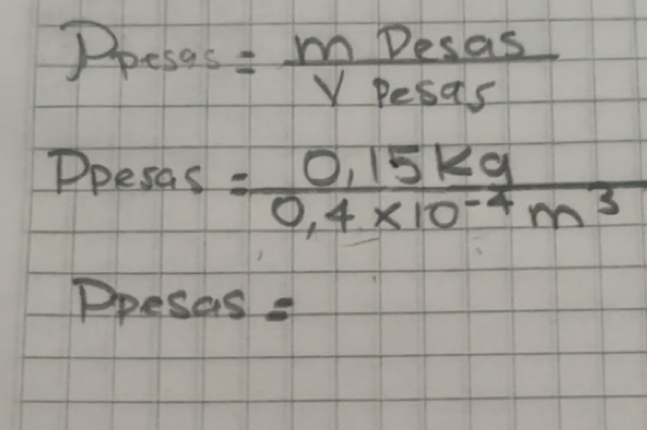 Ppesas = m Pesas / V Pesas
Ppesas = 0,15 Kg / 0,4 × 10⁻⁴ m³
Ppesas =